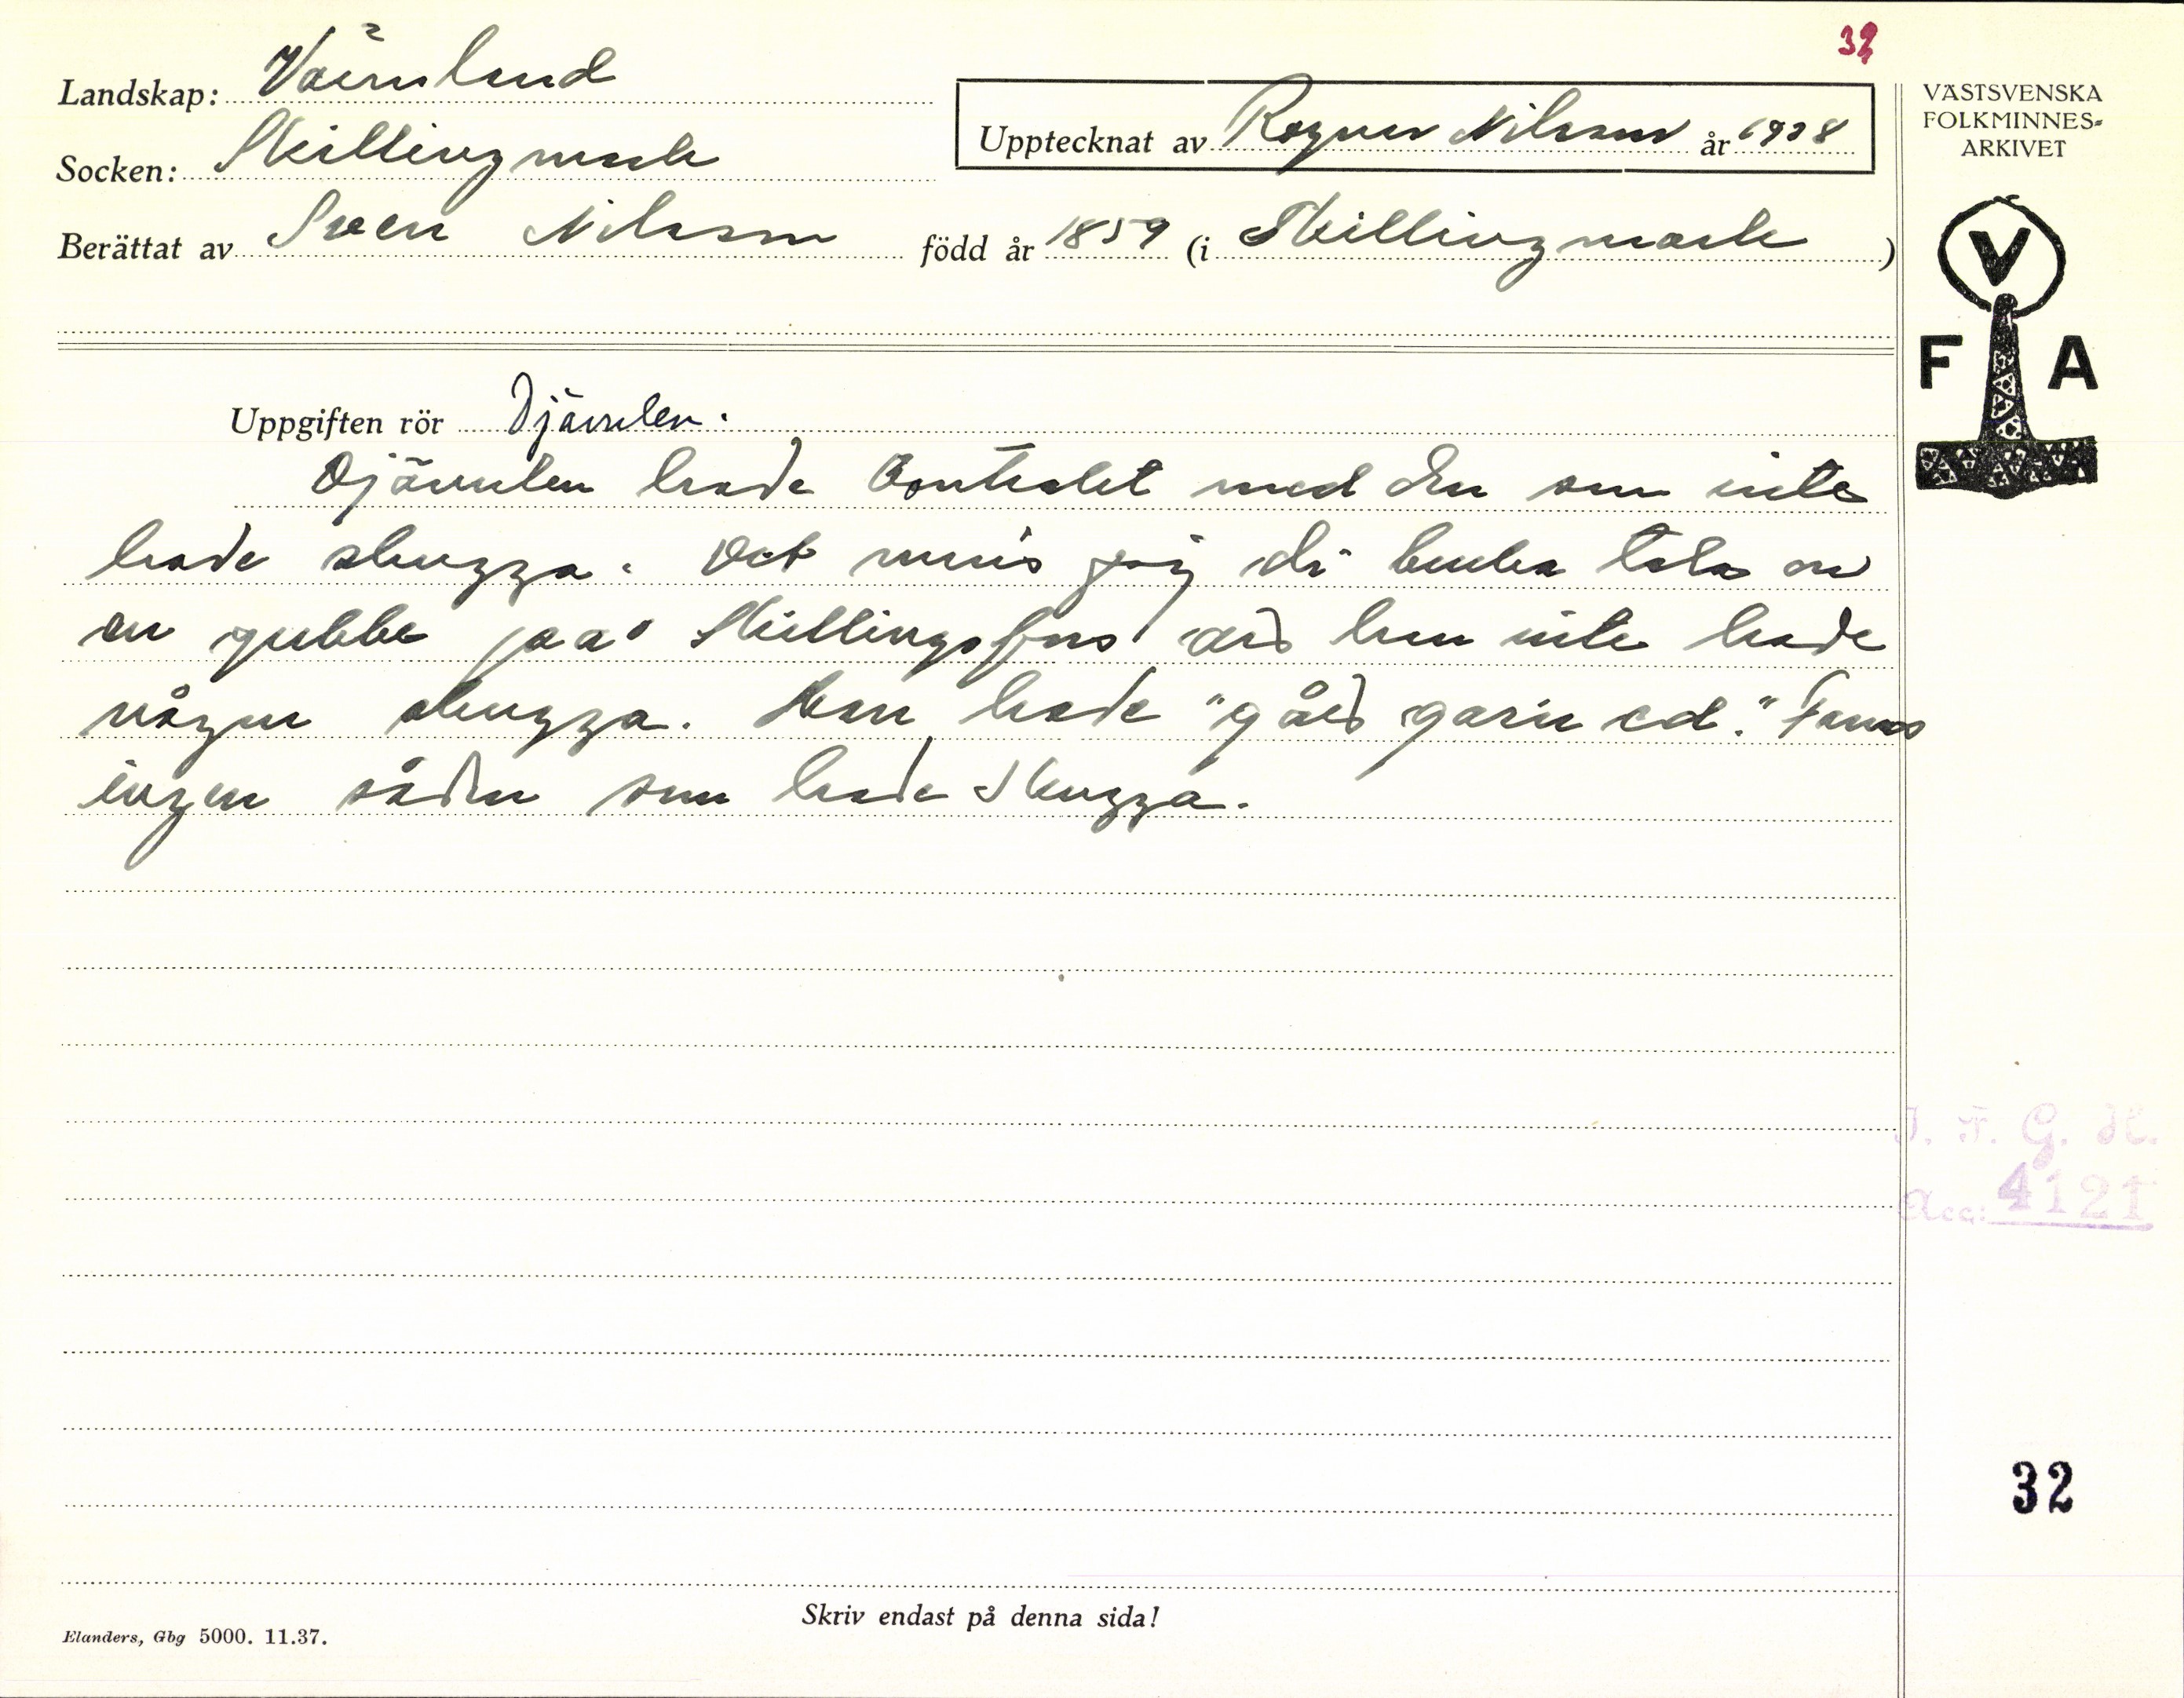 32
Landskap: Värmland
Socken: Skillingmark
Upptecknat av Ragnar Nilsson år 1938
Berättat av Sven Nilsson född år 1859 (i Skillingmark)
VÄSTSVENSKA
FOLKMINNES=
ARKIVET
V
F A
Uppgiften rör Djävulen.
Djävulen hade kontraktet med den som inte
hade skugga. Det minns jag di bruka tala om
en gubbe på Skillingsfors att han inte hade
någon skugga. Han hade "gått garin ed." Fanns
ingen sådan som hade skugga.
I. F. G. H.
Acc: 4121
32
Skriv endast på denna sida!
Elanders, Gbg 5000. 11.37.